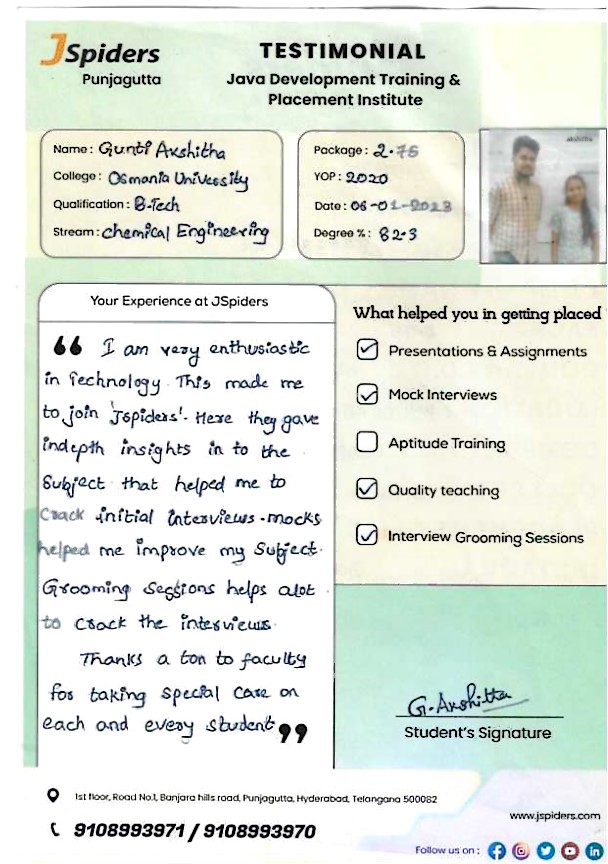 JSpiders
Punjagutta
TESTIMONIAL
Java Development Training &
Placement Institute
Name: Gunti Akshitha
College: Osmania University
Qualification: B-Tech
Stream: Chemical Engineering
Package: 2.75
YOP: 2020
Date: 06-01-2023
Degree %: 82.3
akshitha
Your Experience at JSpiders
❝ I am very enthusiastic
in Technology. This made me
to join 'Jspiders'. Here they gave
indepth insights in to the
Subject that helped me to
Crack initial interviews. mocks
helped me improve my Subject.
Grooming Sessions helps alot
to crack the interviews.
Thanks a ton to faculty
for taking special care on
each and every student ❞
What helped you in getting placed
Presentations & Assignments
Mock Interviews
Aptitude Training
Quality teaching
Interview Grooming Sessions
G. Akshitha
Student's Signature
1st floor, Road No.1, Banjara hills road, Punjagutta, Hyderabad, Telangana 500082
9108993971 / 9108993970
www.jspiders.com
Follow us on :